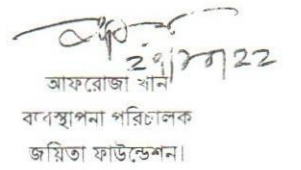 আফরোজা খান
ব্যবস্থাপনা পরিচালক
জয়িতা ফাউন্ডেশন।